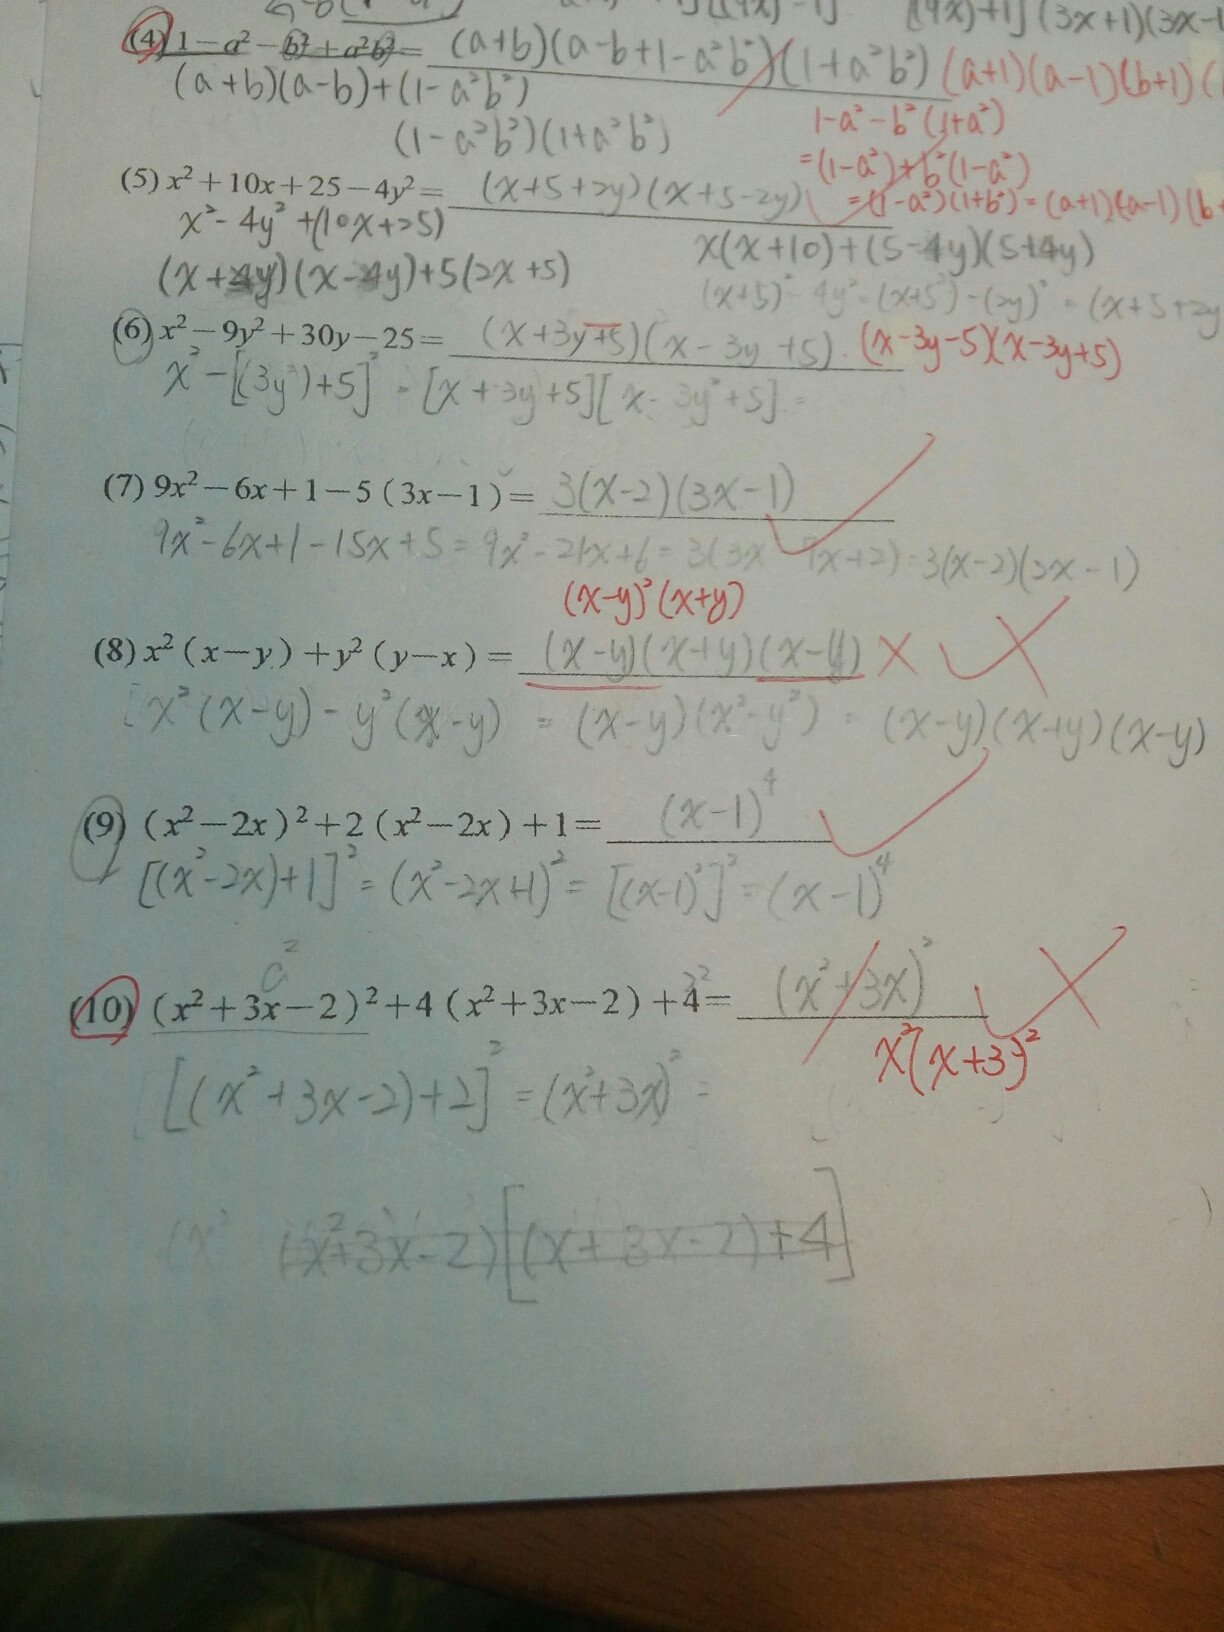 (4) 1-a²-b²+a²b²= (a+b)(a-b+1-a²b²)(1+a²b²) (a+1)(a-1)(b+1)(
(a+b)(a-b)+(1-a²b²)
1-a²-b²(1+a²)
(1-a²b²)(1+a²b²)
=(1-a²)+b²(1-a²)
(5) x²+10x+25-4y²= (x+5+2y)(x+5-2y)
=(1-a²)(1+b²)=(a+1)(a-1)(b+
x²-4y²+(10x+25)
x(x+10)+(5-4y)(5+4y)
(x+4y)(x-4y)+5(2x+5)
(x+5)²-4y²=(x+5²)-(2y)²=(x+5+2y
(6) x²-9y²+30y-25= (x+3y+5)(x-3y+5). (x-3y-5)(x-3y+5)
x²-[(3y²)+5]² = [x+3y+5][x-3y²+5]=
(7) 9x²-6x+1-5(3x-1)= 3(x-2)(3x-1)
9x²-6x+1-15x+5=9x²-21x+6=3(3x 7x+2)=3(x-2)(3x-1)
(x-y)²(x+y)
(8) x²(x-y)+y²(y-x)= (x-y)(x+y)(x-y)
x²(x-y)-y²(x-y) = (x-y)(x²-y²) = (x-y)(x+y)(x-y)
(9) (x²-2x)²+2(x²-2x)+1= (x-1)⁴
[(x²-2x)+1]²=(x²-2x+1)²=[(x-1)²]²=(x-1)⁴
(10) (x²+3x-2)²+4(x²+3x-2)+4= (x²+3x)²
x²(x+3)²
[(x²+3x-2)+2]²=(x²+3x)²=
(x²+3x-2)[(x+3x-2)+4]